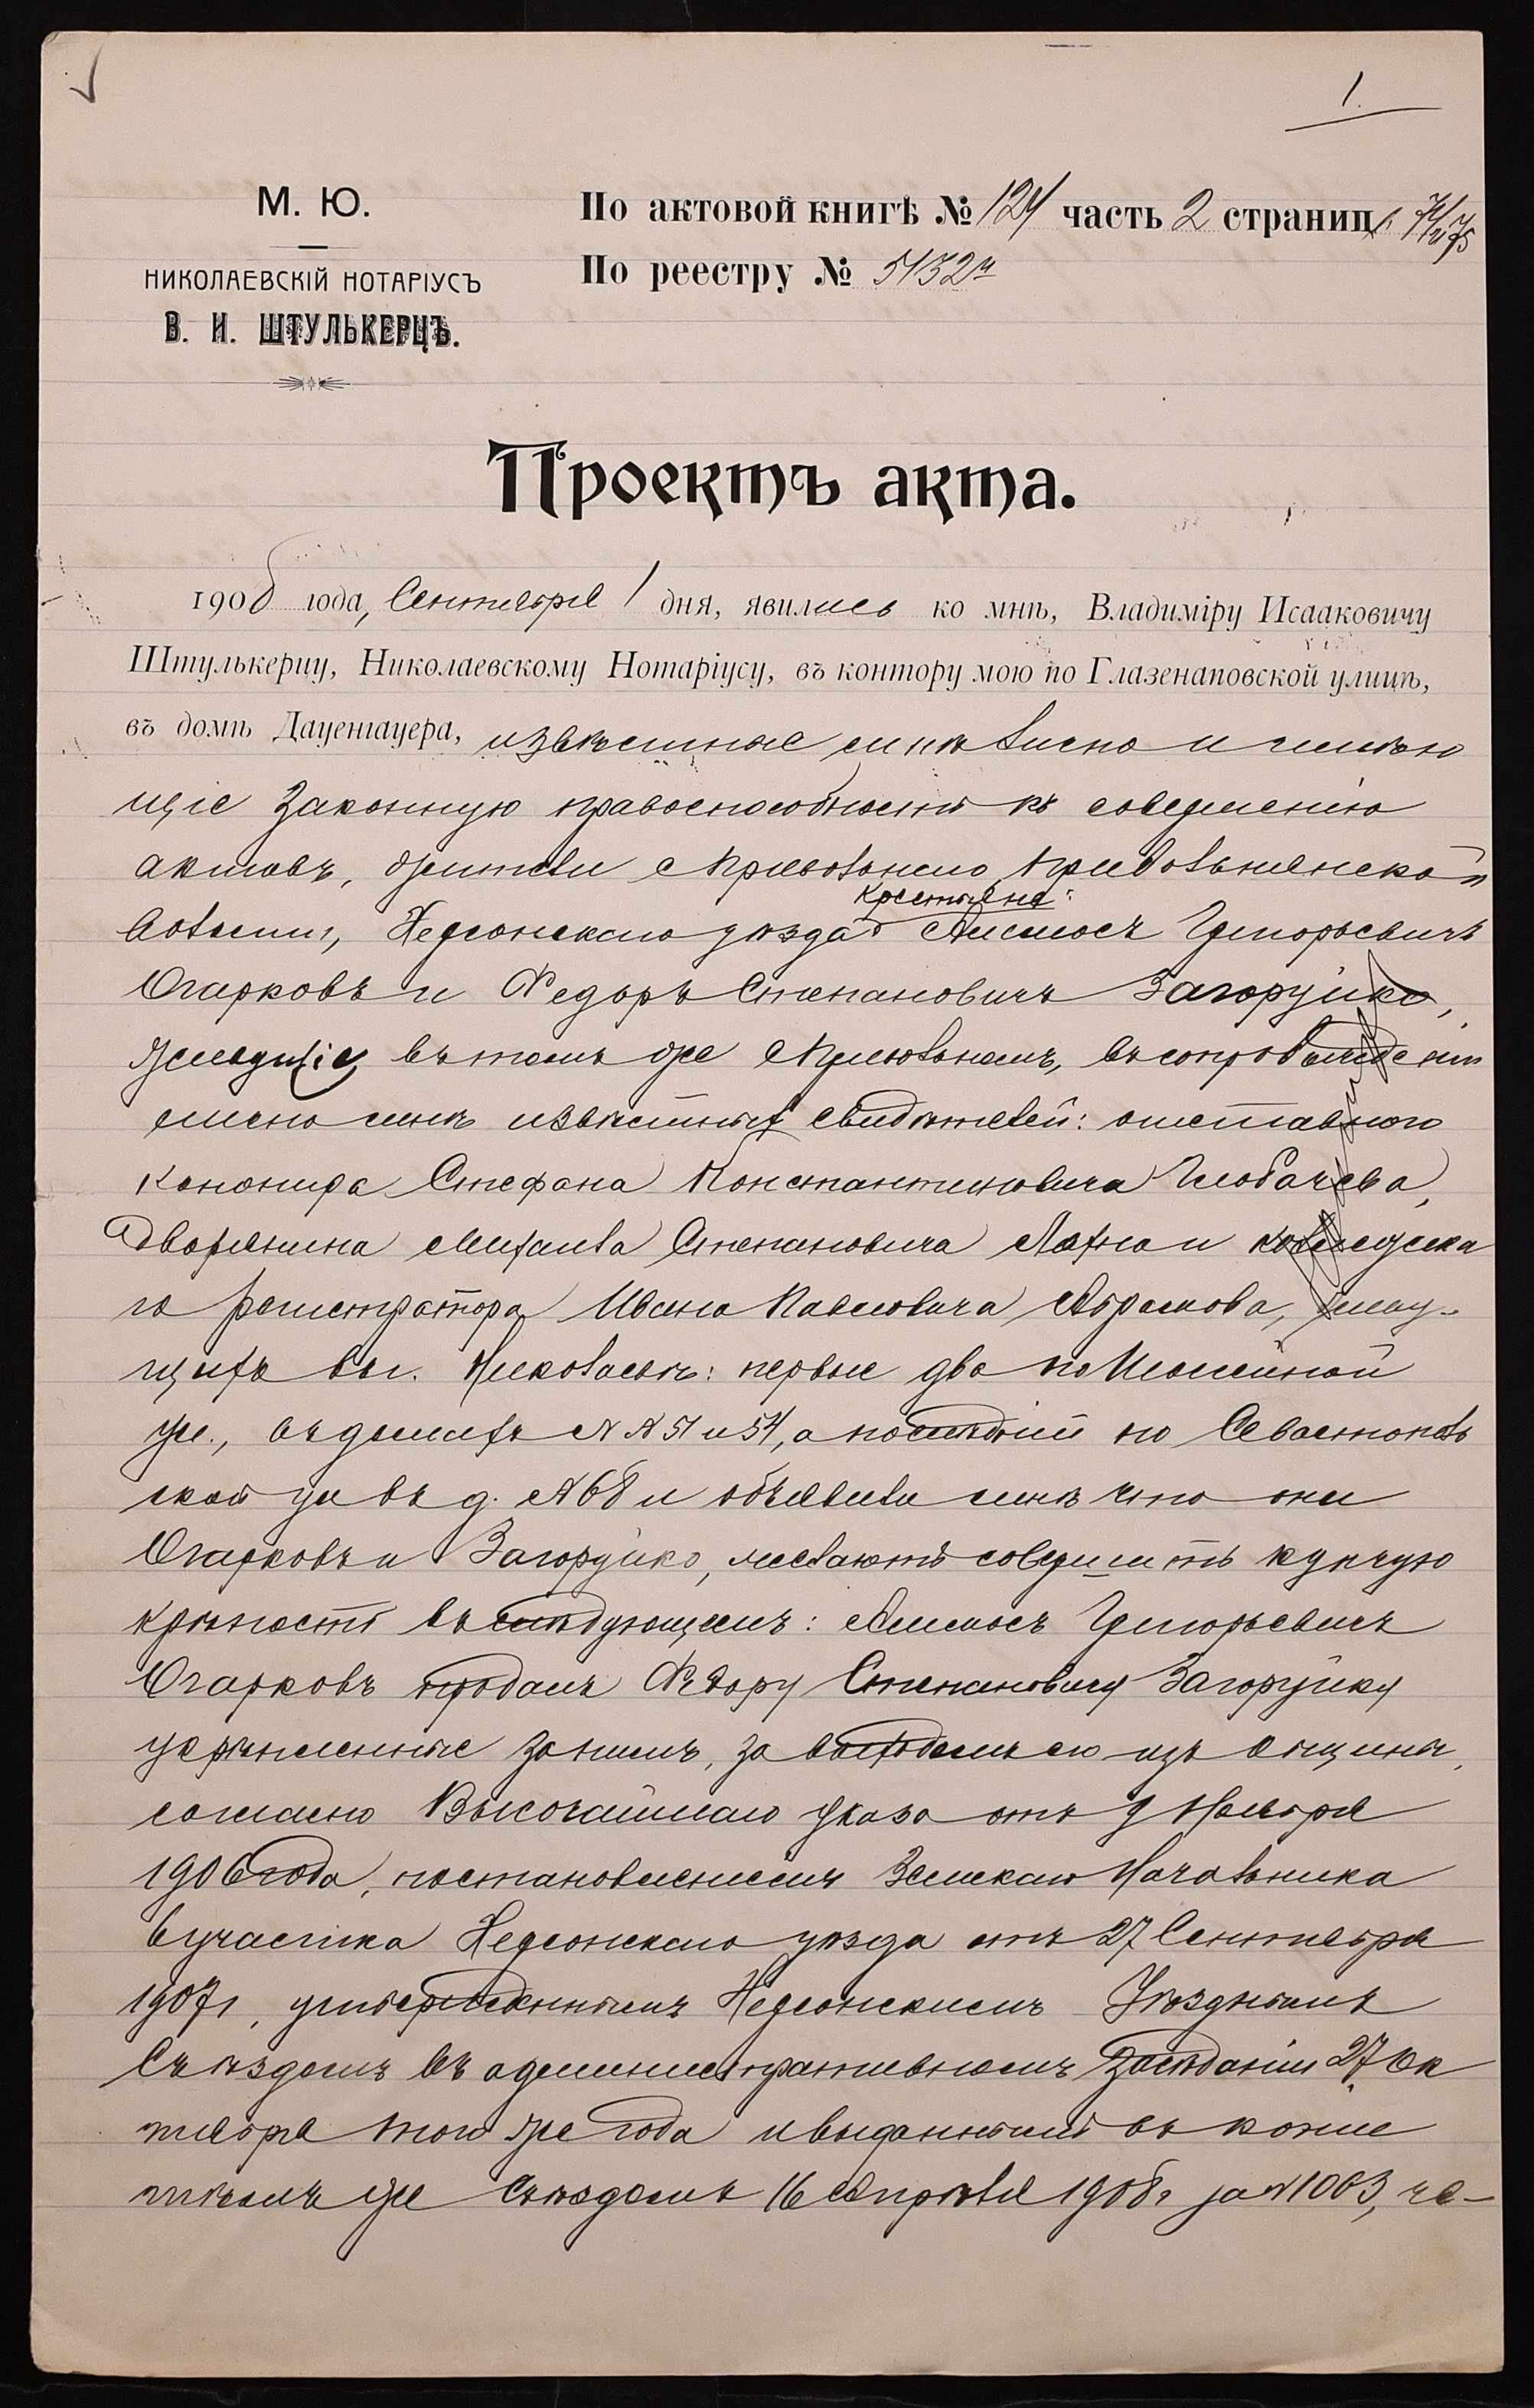 1.
М. Ю.
НИКОЛАЕВСКІЙ НОТАРІУСЪ
В. И. ШТУЛЬКЕРЦЪ.
По актовой книгѣ № 124 часть 2 страниц 74/75
По реестру № 5132
Проектъ акта.
1908 года, Сентября 1 дня, явились ко мнѣ, Владиміру Исааковичу
Штулькерцу, Николаевскому Нотаріусу, въ контору мою по Глазенаповской улицѣ,
въ домѣ Дауенгауера, извѣстные мнѣ лично и имѣю
щіе законную правоспособность къ совершенію
актовъ, жители с Привольнаго, Привольнянской
крестьяне:
волости, Херсонскаго уѣзда Григорьевичъ
Огарковъ и Федоръ Степановичъ Загоруйко,
живущіе въ томъ же Привольномъ, въ сопровожденіи
лично мнѣ извѣстныхъ свидѣтелей: отставного
канонира Стефана Константиновича
дворянина Михаила Степановича и коллежска
го регистратора Ивана Павловича Абрамова, живу-
щихъ въ г. Николаевѣ: первые два по
ул., въ домахъ №№ 51 и 54, а послѣдній по Севастополь
ской ул въ д. № 68 и объявили мнѣ что они
Огарковъ и Загоруйко, желаютъ совершить купчую
крѣпость въ слѣдующемъ: Григорьевичъ
Огарковъ продалъ Федору Степановичу Загоруйку
укрѣпленные за нимъ, за выходомъ его изъ общины,
согласно Высочайшаго указа отъ 9 Ноября
1906 года, постановленіемъ Земскаго Начальника
6 участка Херсонскаго уѣзда отъ 27 Сентября
1907 г, утвержденнымъ Херсонскимъ Уѣзднымъ
Съѣздомъ въ административномъ засѣданіи 27 Ок
тября того же года и выданнымъ въ копіи
тѣмъ же Съѣздомъ 16 Апрѣля 1908 г за № 1003, че-